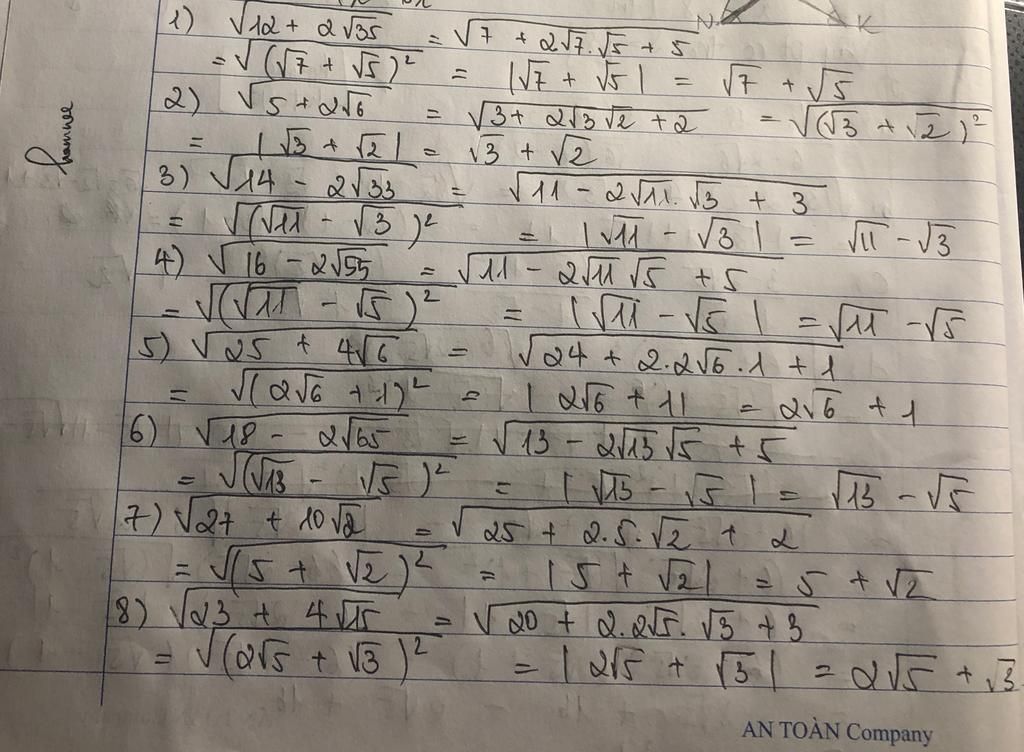 N K
1) √(12 + 2√35) = √(7 + 2√7.√5 + 5)
= √((√7 + √5)²) = |√7 + √5| = √7 + √5
2) √(5 + 2√6) = √(3 + 2√3√2 + 2) = √((√3 + √2)²)
= |√3 + √2| = √3 + √2
3) √(14 - 2√33) = √(11 - 2√11.√3 + 3)
= √((√11 - √3)²) = |√11 - √3| = √11 - √3
4) √(16 - 2√55) = √(11 - 2√11√5 + 5)
= √((√11 - √5)²) = |√11 - √5| = √11 - √5
5) √(25 + 4√6) = √(24 + 2.2√6.1 + 1)
= √((2√6 + 1)²) = |2√6 + 1| = 2√6 + 1
6) √(18 - 2√65) = √(13 - 2√13√5 + 5)
= √((√13 - √5)²) = |√13 - √5| = √13 - √5
7) √(27 + 10√2) = √(25 + 2.5.√2 + 2)
= √((5 + √2)²) = |5 + √2| = 5 + √2
8) √(23 + 4√15) = √(20 + 2.2√5.√3 + 3)
= √((2√5 + √3)²) = |2√5 + √3| = 2√5 + √3
AN TOÀN Company